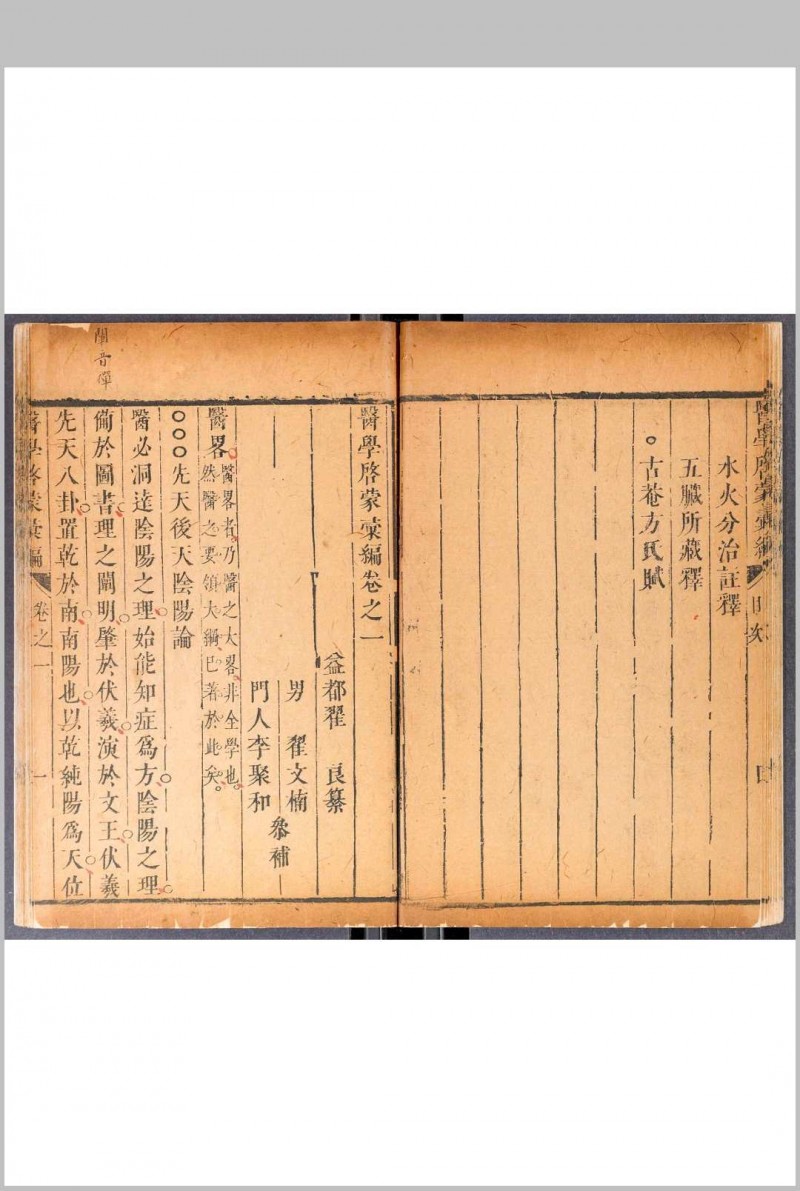 醫學啓蒙彙編
目次
四
水火分治註釋
五臟所藏釋
。古菴方氏賦
醫學啓蒙彙編卷之一
益都翟 良纂
男 翟文楠
門人李聚和
叅補
醫畧
醫畧者乃醫之大畧非全學也。
然醫之要領大綱已著於此矣。
○○○先天後天陰陽論
醫必洞達陰陽之理始能知症爲方陰陽之理
俻於圖書理之闡明肇於伏羲演於文王伏羲
先天八卦置乾於南南陽也以乾純陽爲天位
闡音
醫學啓蒙彙編
卷之一
一